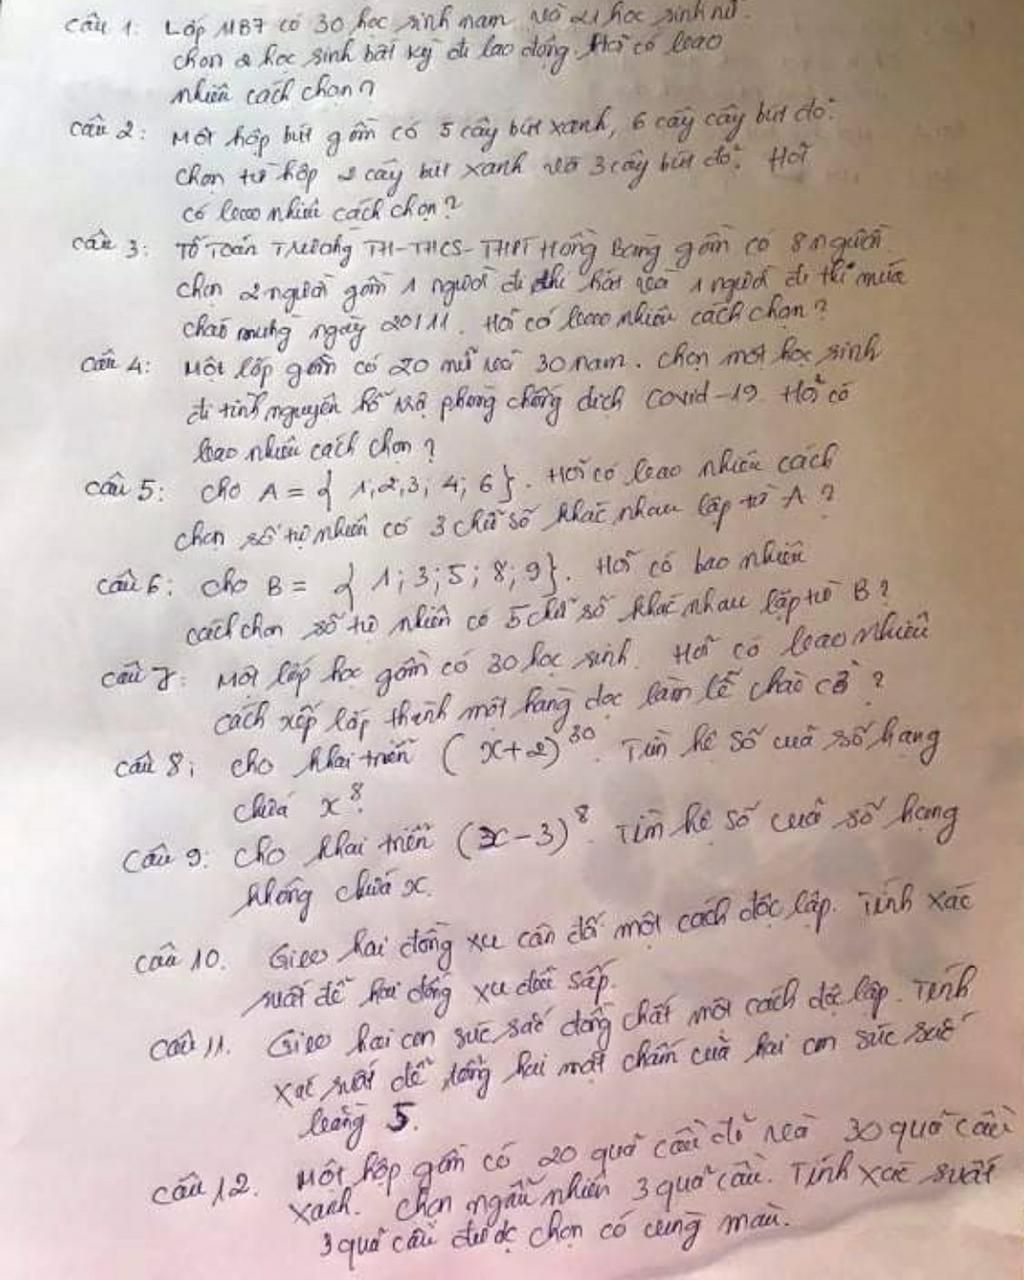 Câu 1: Lớp 11B7 có 30 học sinh nam và 21 học sinh nữ.
chọn 2 học sinh bất kỳ đi lao động. Hỏi có bao
nhiêu cách chọn?
Câu 2: Một hộp bút gồm có 5 cây bút xanh, 6 cây cây bút đỏ.
chọn từ hộp 2 cây bút xanh và 3 cây bút đỏ. Hỏi
có bao nhiêu cách chọn?
Câu 3: Tổ Toán Trường TH-THCS-THPT Hồng Bàng gồm có 8 người
chọn 2 người gồm 1 người đi thi hát và 1 người đi thi múa
chào mừng ngày 20/11. Hỏi có bao nhiêu cách chọn?
Câu 4: Một lớp gồm có 20 nữ và 30 nam. chọn một học sinh
đi tình nguyện hỗ trợ phòng chống dịch covid-19. Hỏi có
bao nhiêu cách chọn?
Câu 5: cho A = { 1,2,3; 4; 6 }. Hỏi có bao nhiêu cách
chọn số tự nhiên có 3 chữ số khác nhau lập từ A?
Câu 6: cho B = { 1; 3; 5; 8; 9}. Hỏi có bao nhiêu
cách chọn số tự nhiên có 5 chữ số khác nhau lập từ B?
Câu 7: Một lớp học gồm có 30 học sinh. Hỏi có bao nhiêu
cách xếp lớp thành một hàng dọc làm lễ chào cờ?
Câu 8: cho khai triển (x+2)^30. Tìm hệ số của số hạng
chứa x^8.
Câu 9: cho khai triển (x-3)^8. Tìm hệ số của số hạng
không chứa x.
Câu 10. Gieo hai đồng xu cân đối một cách độc lập. Tính xác
suất để hai đồng xu đều sấp.
Câu 11. Gieo hai con súc sắc đồng chất một cách độc lập. Tính
xác suất để tổng hai mặt chấm của hai con súc sắc
bằng 5.
Câu 12. Một hộp gồm có 20 quả cầu đỏ và 30 quả cầu
xanh. chọn ngẫu nhiên 3 quả cầu. Tính xác suất
3 quả cầu được chọn có cùng màu.